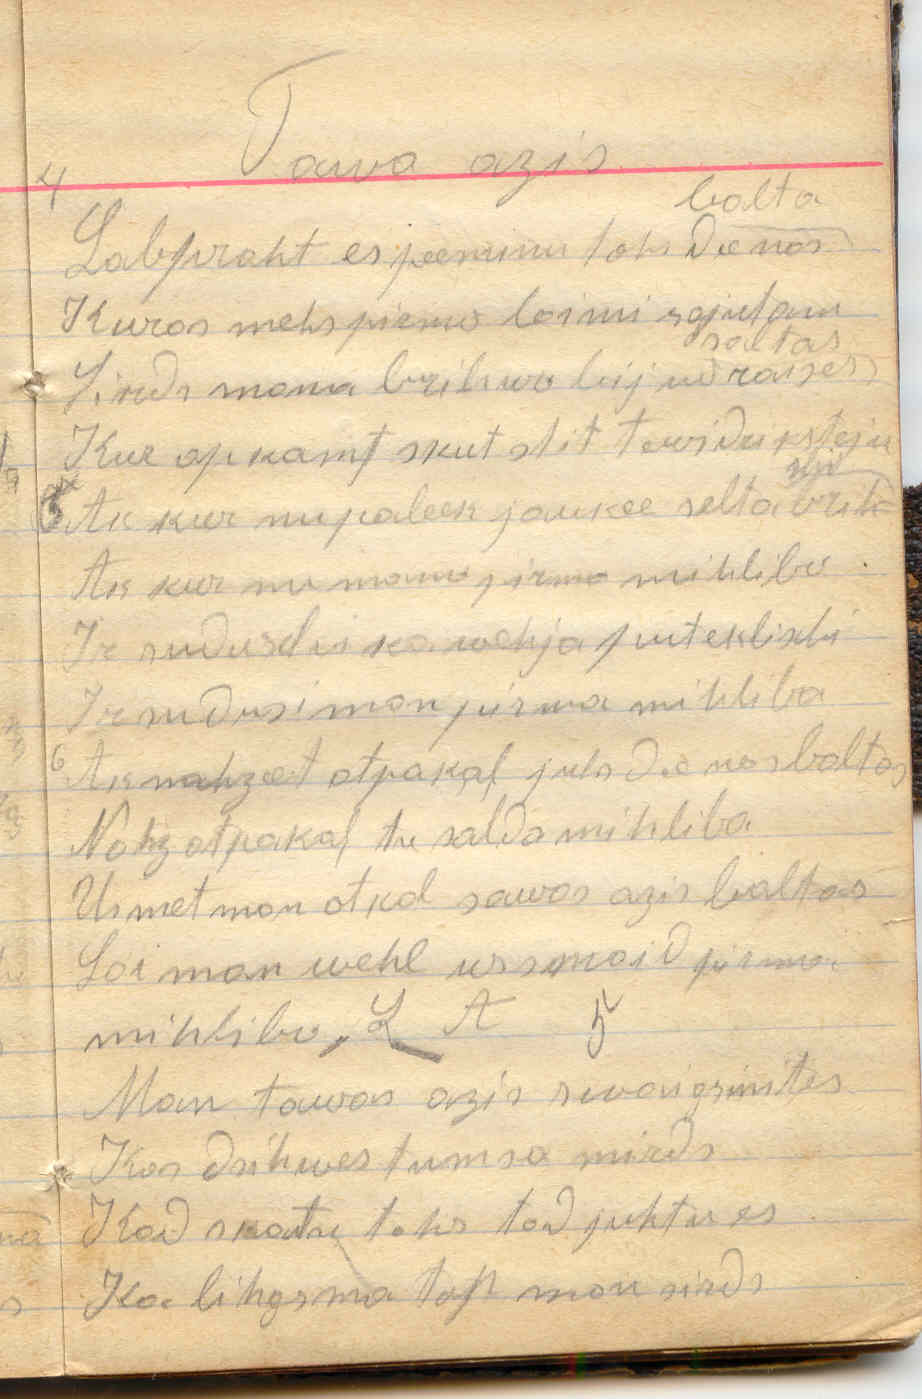 Tawa azis
4
balta
Labpraht es peeminu tahs deenas
Kuras mehs pirmo laimi sajutam
saltas
Sirds mana brihwa bij
Kur apkamt skutstit tewi drihksteju
5 Ak kur nu paleek jaukee selta brihs
Ak kur nu mana pirma mihliba
Ir sudusi ka wehja puteklischi
Ir sudusi man pirma mihliba
6 Ak nahzeet atpakaļ juhs deenas baltas
Nahz atpakaļ tu salda mihliba
Usmet man atkal sawas azis baltas
Lai man wehl ussmaid pirma
mihliba, L A 5
Man tawas azis swaigsnites
Kas dsihwes tumsa mirds
Kad skatu tahs tad juhtu es
Ka lihgsma tapt man sirds